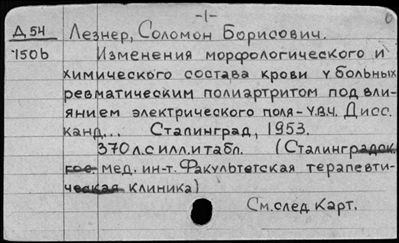 -1-
Д 54 Лезнер, Соломон Борисович.
150b Изменения морфологического и
химического состава крови у больных
ревматическим полиартритом под вли-
янием электрического поля - У.В.Ч. Дисс.
канд... Сталинград, 1953.
370 л. с илл. и табл. (Сталинградск.
гос. мед. ин-т. Факультетская терапевти-
ческая клиника)
См. след. карт.